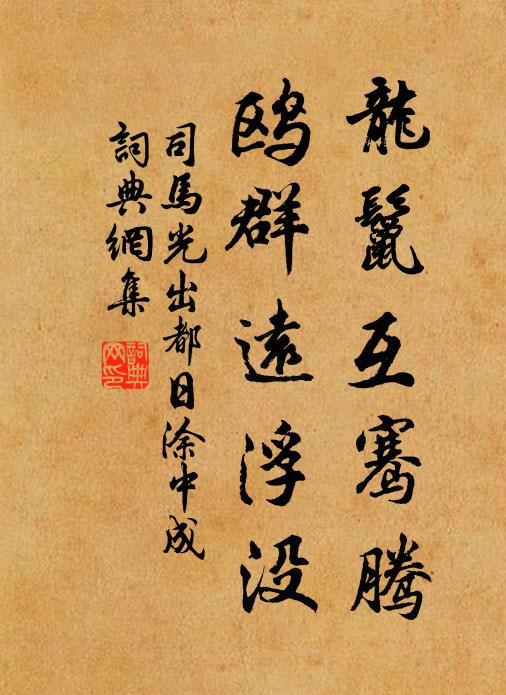 龍鬣互騫騰
鸥群遠浮沒
司馬光出都日涂中成
詞典網集
詞典
网印